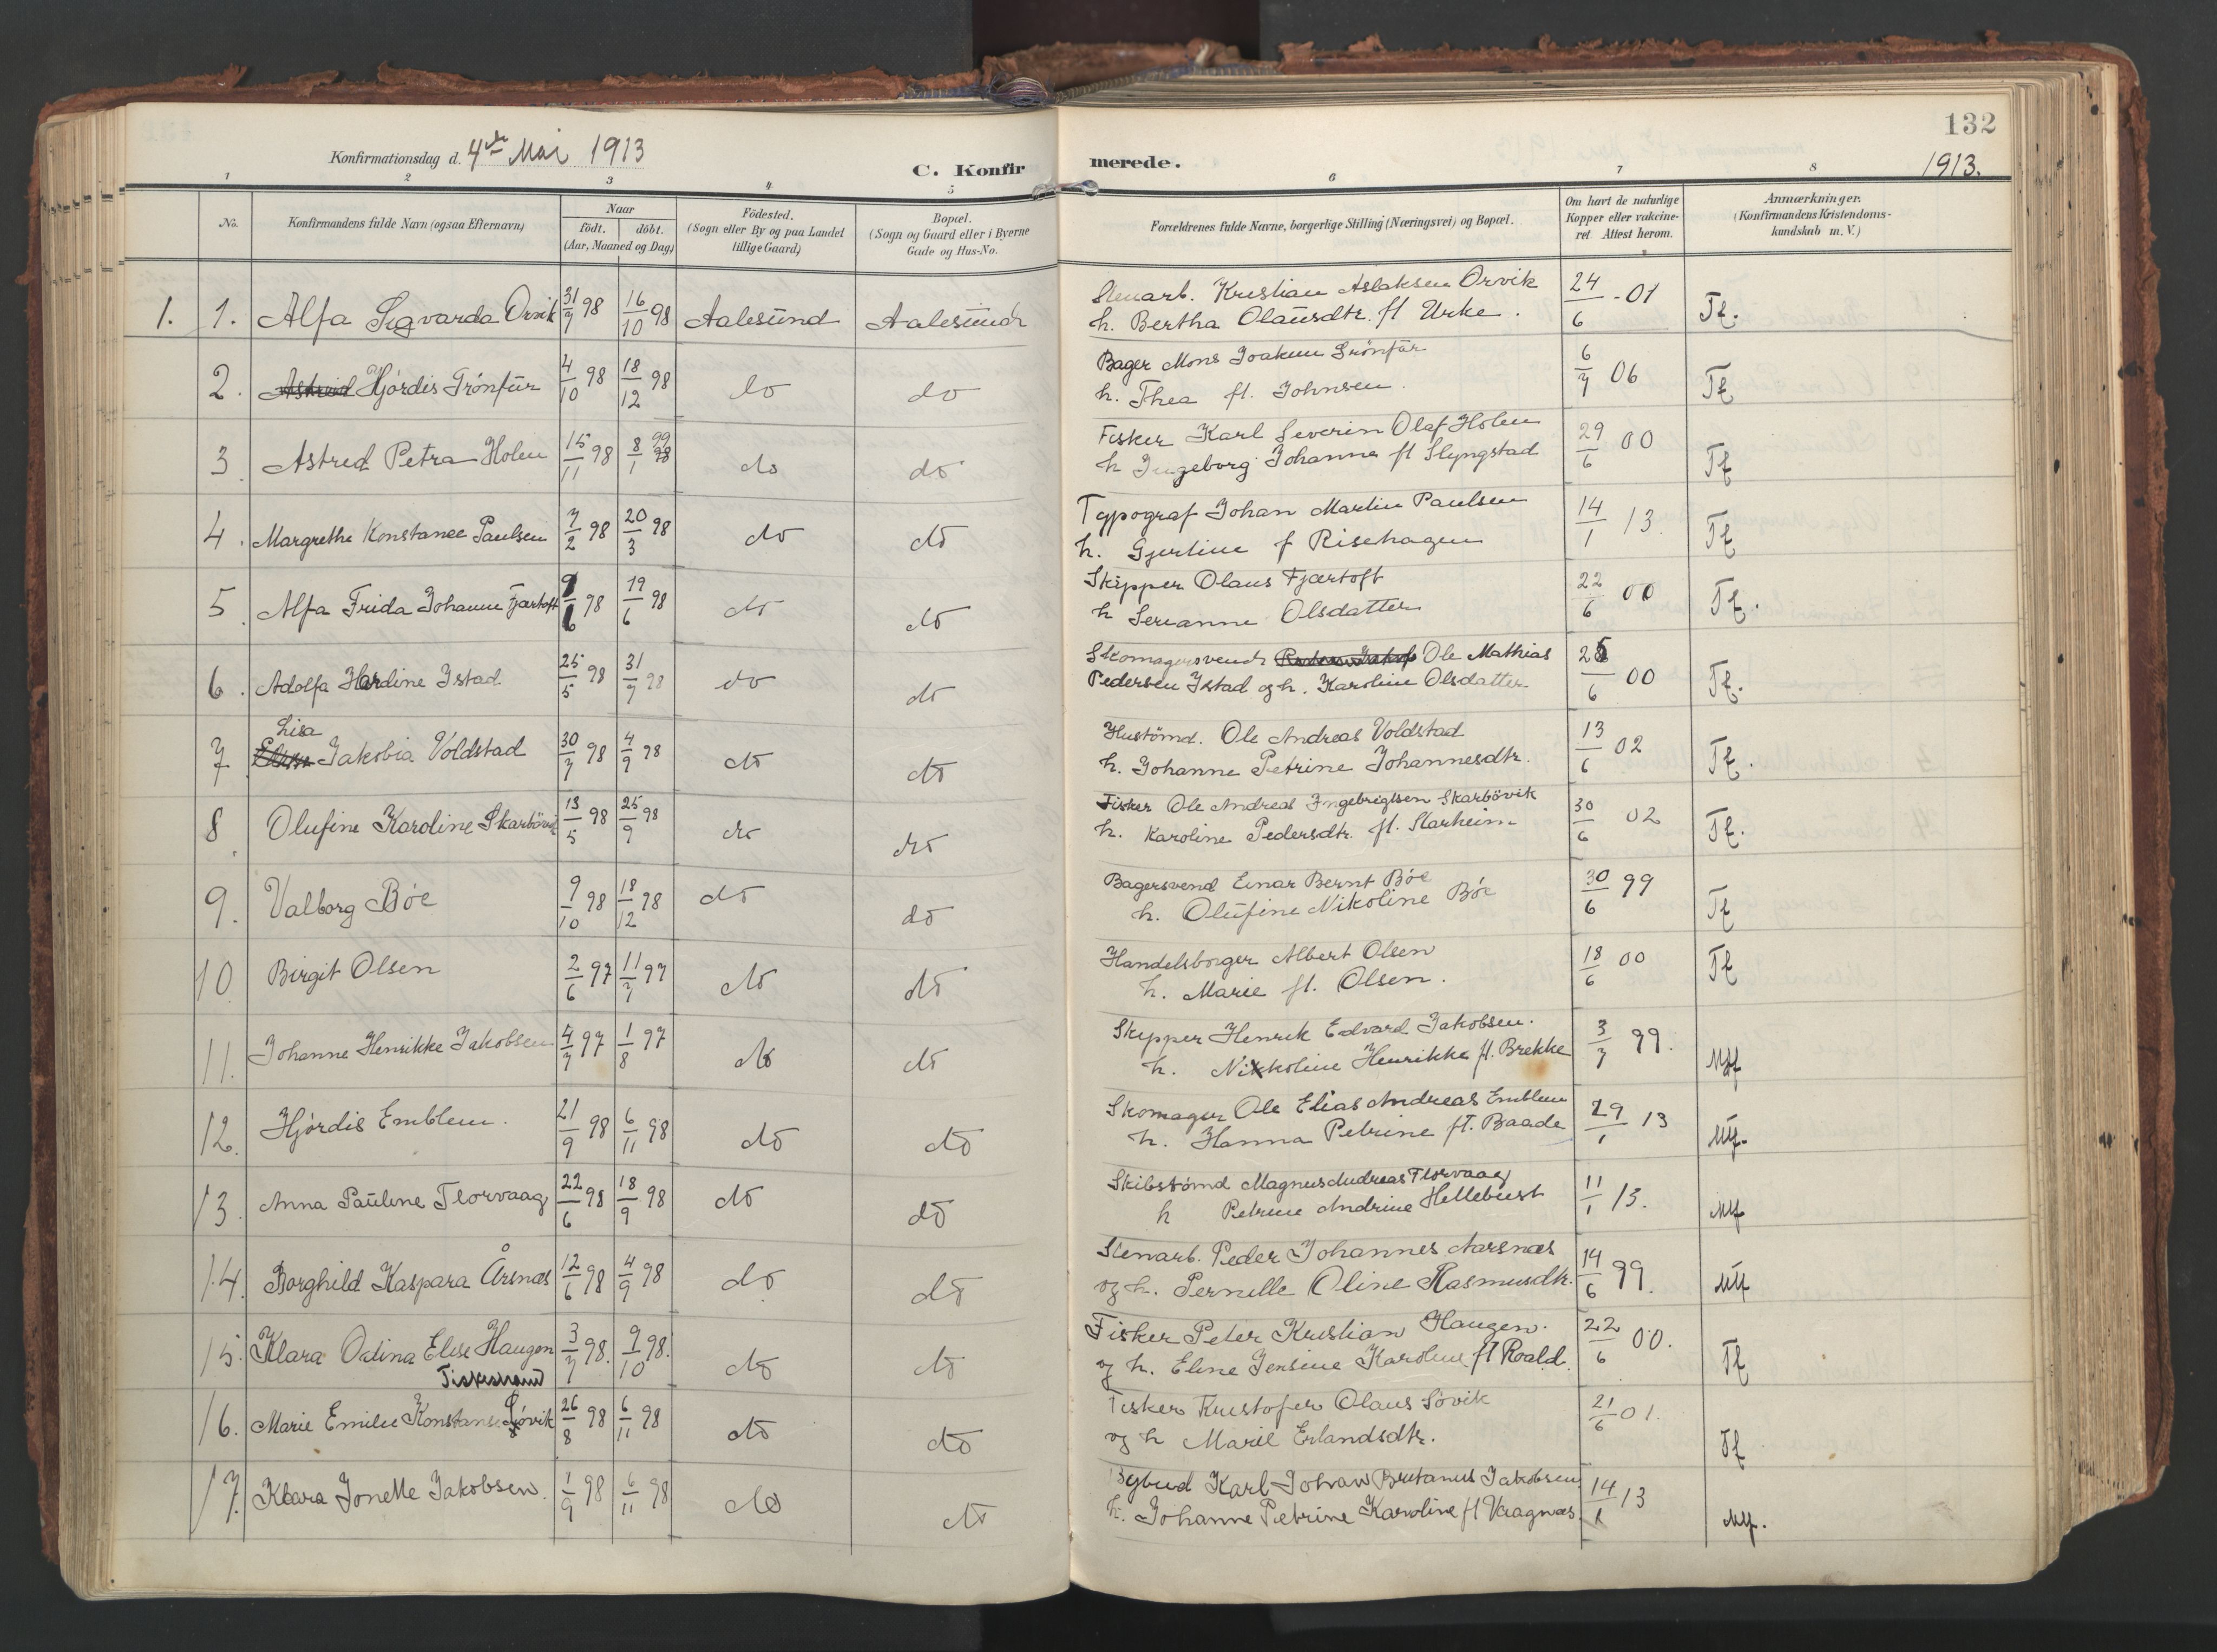 132
Konfirmationsdag d. 4de Mai 1913
C. Konfirmerede.
1913.
1 2 3 4 5 6 7 8
No.
Konfirmandens fulde Navn (ogsaa Efternavn)
Naar
födt. döbt.
(Aar, Maaned og Dag)
Födested.
(Sogn eller By og paa Landet
tillige Gaard)
Bopæl.
(Sogn og Gaard eller i Byerne
Gade og Hus-No.
Forældrenes fulde Navne, borgerlige Stilling (Næringsvei) og Bopæl.
Om havt de naturlige
Kopper eller vakcine-
ret Attest herom.
Anmærkninger.
(Konfirmandens Kristendoms-
kundskab m. V.)
1. 1. Alfa Sigvarda Orvik 31/7 98 16/10 98 Aalesund Aalesund
Stenarb. Kristian Aslaksen Orvik 24/6 - 01 Tf.
h. Bertha Olausdtr. ft Urke.
2. Astrid Hjördis Grönfur 4/10 98 18/12 98 do do
Bager Mons Joakum Grönfur 6/7 06 Tf
h. Thea ft. Johnsen.
3 Astred Petra Holen 15/11 98 8/1 99 98 do do
Fisker Karl Severin Olaf Holen 29/6 00 Tf
h Ingeborg Johanne ft Slyngstad
4. Margrethe Konstance Paulsen 7/2 98 20/3 98 do do
Typograf Johan Martin Paulsen 14/1 13. Tf
h. Gjertine f Risehagen
5 Alfa Frida Johanne Fjærtoft 9/6 98 19/6 98 do do
Skipper Olaus Fjærtoft 22/6 00 Tf.
h Serianne Olsdatter
6. Adolfa Hardine Istad 25/5 98 31/7 98 do do
Skomagersvend Ole Mathias 25/6 00 Tf.
Pedersen Istad og h. Karoline Olsdatter
Lisa
7 Jakobia Voldstad 30/7 98 4/9 98 do do
Hustömd. Ole Andreas Voldstad 13/6 02 Tf.
h. Johanne Petrine Johannesdtr.
8 Olufine Karoline Skarbövik 13/5 98 25/9 98 do do
Fisker Ole Andreas Ingebrigtsen Skarbövik 30/6 02 Tf.
h. Karoline Pedersdtr. ft. Starheim
9. Valborg Böe 9/10 98 18/12 98 do do
Bagersvend Einar Bernt Böe 30/6 99 Tf
h. Olufine Nikoline Böe
10 Birgit Olsen 2/6 97 11/7 97 do do
Handelsborger Albert Olsen 18/6 00 Tf
h. Marie ft. Olsen.
11. Johanne Henrikke Jakobsen 4/7 97 1/8 97 do do
Skipper Henrik Edvard Jakobsen. 3/7 99. Mtf
h. Nikkoline Henrikke ft. Brekke
12. Hjördis Emblem. 21/9 98 6/11 98 do do
Skomager Ole Elias Andreas Emblem 29/1 13 Mtf.
h. Hanna Petrine ft. Baade
13. Anna Pauline Florvaag 22/6 98 18/9 98 do do
Skibstömd Magnus Andreas Florvaag 11/1 13. Mtf
h Petrine Andrine Hellebust
14. Borghild Kaspara Årsnæs 12/6 98 4/9 98 do do
Stenarb. Peder Johannes Aarsnæs 14/6 99. Mtf
og h. Pernille Oline Rasmusdtr.
15. Klara Odina Elise Haugen 3/7 98. 9/10 98. do do
Fisker Peter Kristian Haugen. 22/6 00. Tf
og h. Eline Jensine Karoline ft Roald.
Fiskerstrand
16. Marie Emilie Konstanse Sövik 26/8 98 6/11 98 do do
Fisker Kristofer Olaus Sövik 21/6 01. Tf
og h Marie Erlandsdtr.
17. Klara Jonette Jakobsen. 1/9 98 6/11 98 do do
Bybud Karl Johan Britanus Jakobsen 14/1 13 Mtf.
h. Johanne Petrine Karoline ft Vaagnæs.